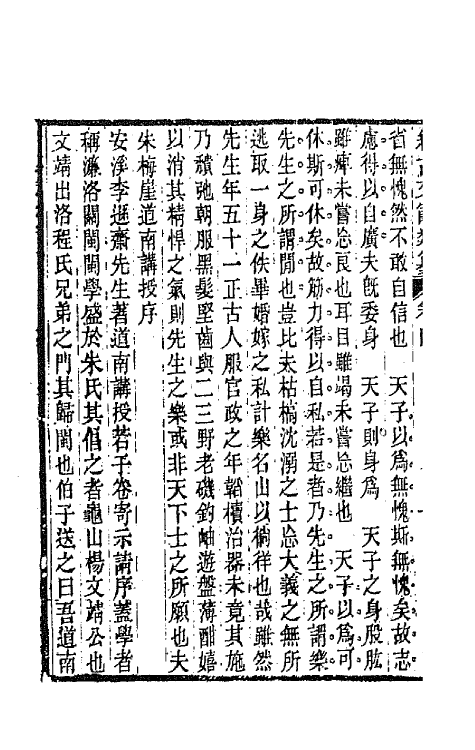 省無愧然不敢自信也　天子以爲無愧斯無愧矣故志
應得以自廣夫旣委身　天子則身爲　天子之身股肱
雖痺未嘗忘良也耳目雖竭未嘗忘繼也　天子以爲可
休斯可休矣故筋力得以自私若是者乃先生之所謂樂
先生之所謂閒也豈比夫枯槁沈溺之士忘大義之無所
逃取一身之佚畢婚嫁之私計樂名山以徜徉也哉雖然
先生年五十一正古人服官政之年韜櫝治器未竟其施
乃積弛朝服黑髮堅齒與二三野老磯釣岫遊盤薄酣嬉
以消其精悍之氣則先生之樂或非天下士之所願也夫
朱梅崖道南講授序
安溪李遜齋先生著道南講授若干卷寄示請序蓋學者
稱濂洛關閩閩學盛於朱氏其倡之者龜山楊文靖公也
文靖出洛程氏兄弟之門其歸閩也伯子送之曰吾道南